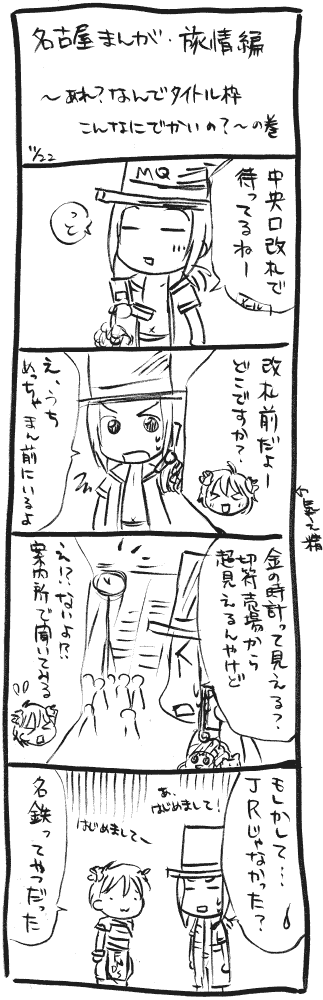 名古屋まんが・旅情編
～あれ?なんでタイトル枠
こんなにでかいの?～の巻
11/22
中央口改札で
待ってるねー
メール
MQ
っと
改札前だよー
どこですか?
え、うち
めっちゃまん前にいるよ
金の時計って見える?
切符売場から
超見えるんやけど
え!?ないよ!?
案内所で聞いてみる
もしかして…
JRじゃなかった?
あ、
はじめまして!
はじめまして～
名鉄ってやつだった